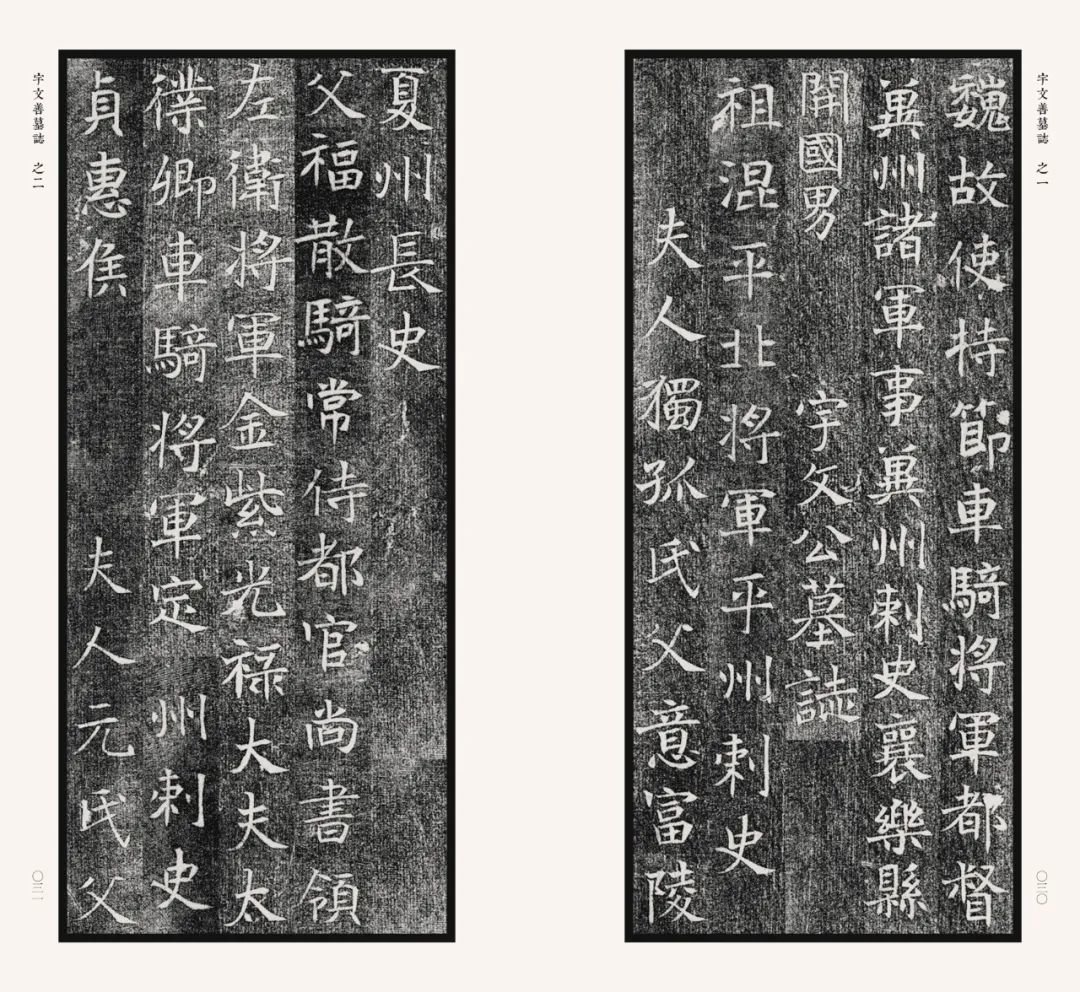 宇文善墓誌 之一
〇三〇
魏故使持節車騎將軍都督
冀州諸軍事冀州刺史襄樂縣
開國男 宇文公墓誌
祖混平北將軍平州刺史
夫人獨孤氏父意富陵
夏州長史
父福散騎常侍都官尚書領
左衛將軍金紫光祿大夫太
僕卿車騎將軍定 州刺史
貞惠侯 夫人元氏父
宇文善墓誌 之二
〇三一